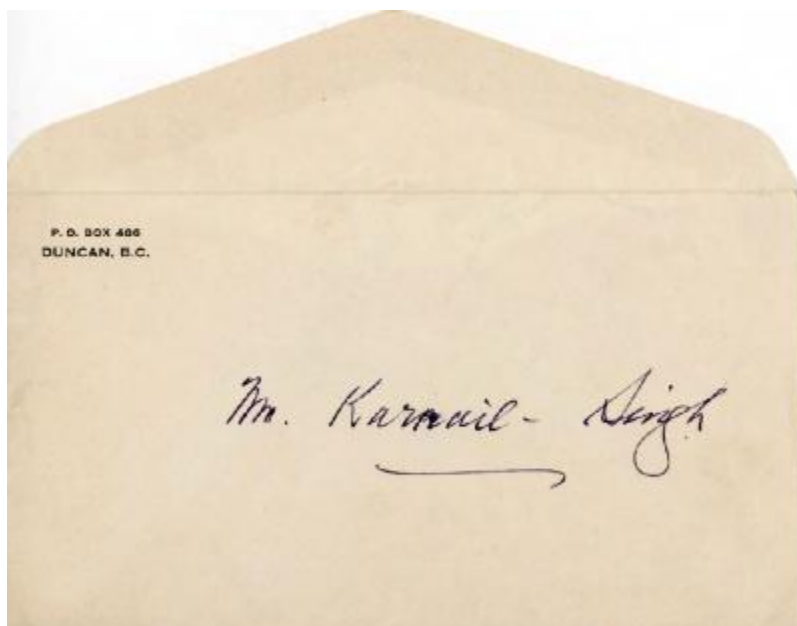 P. O. BOX 486
DUNCAN, B.C.
Mr. Karnail- Singh